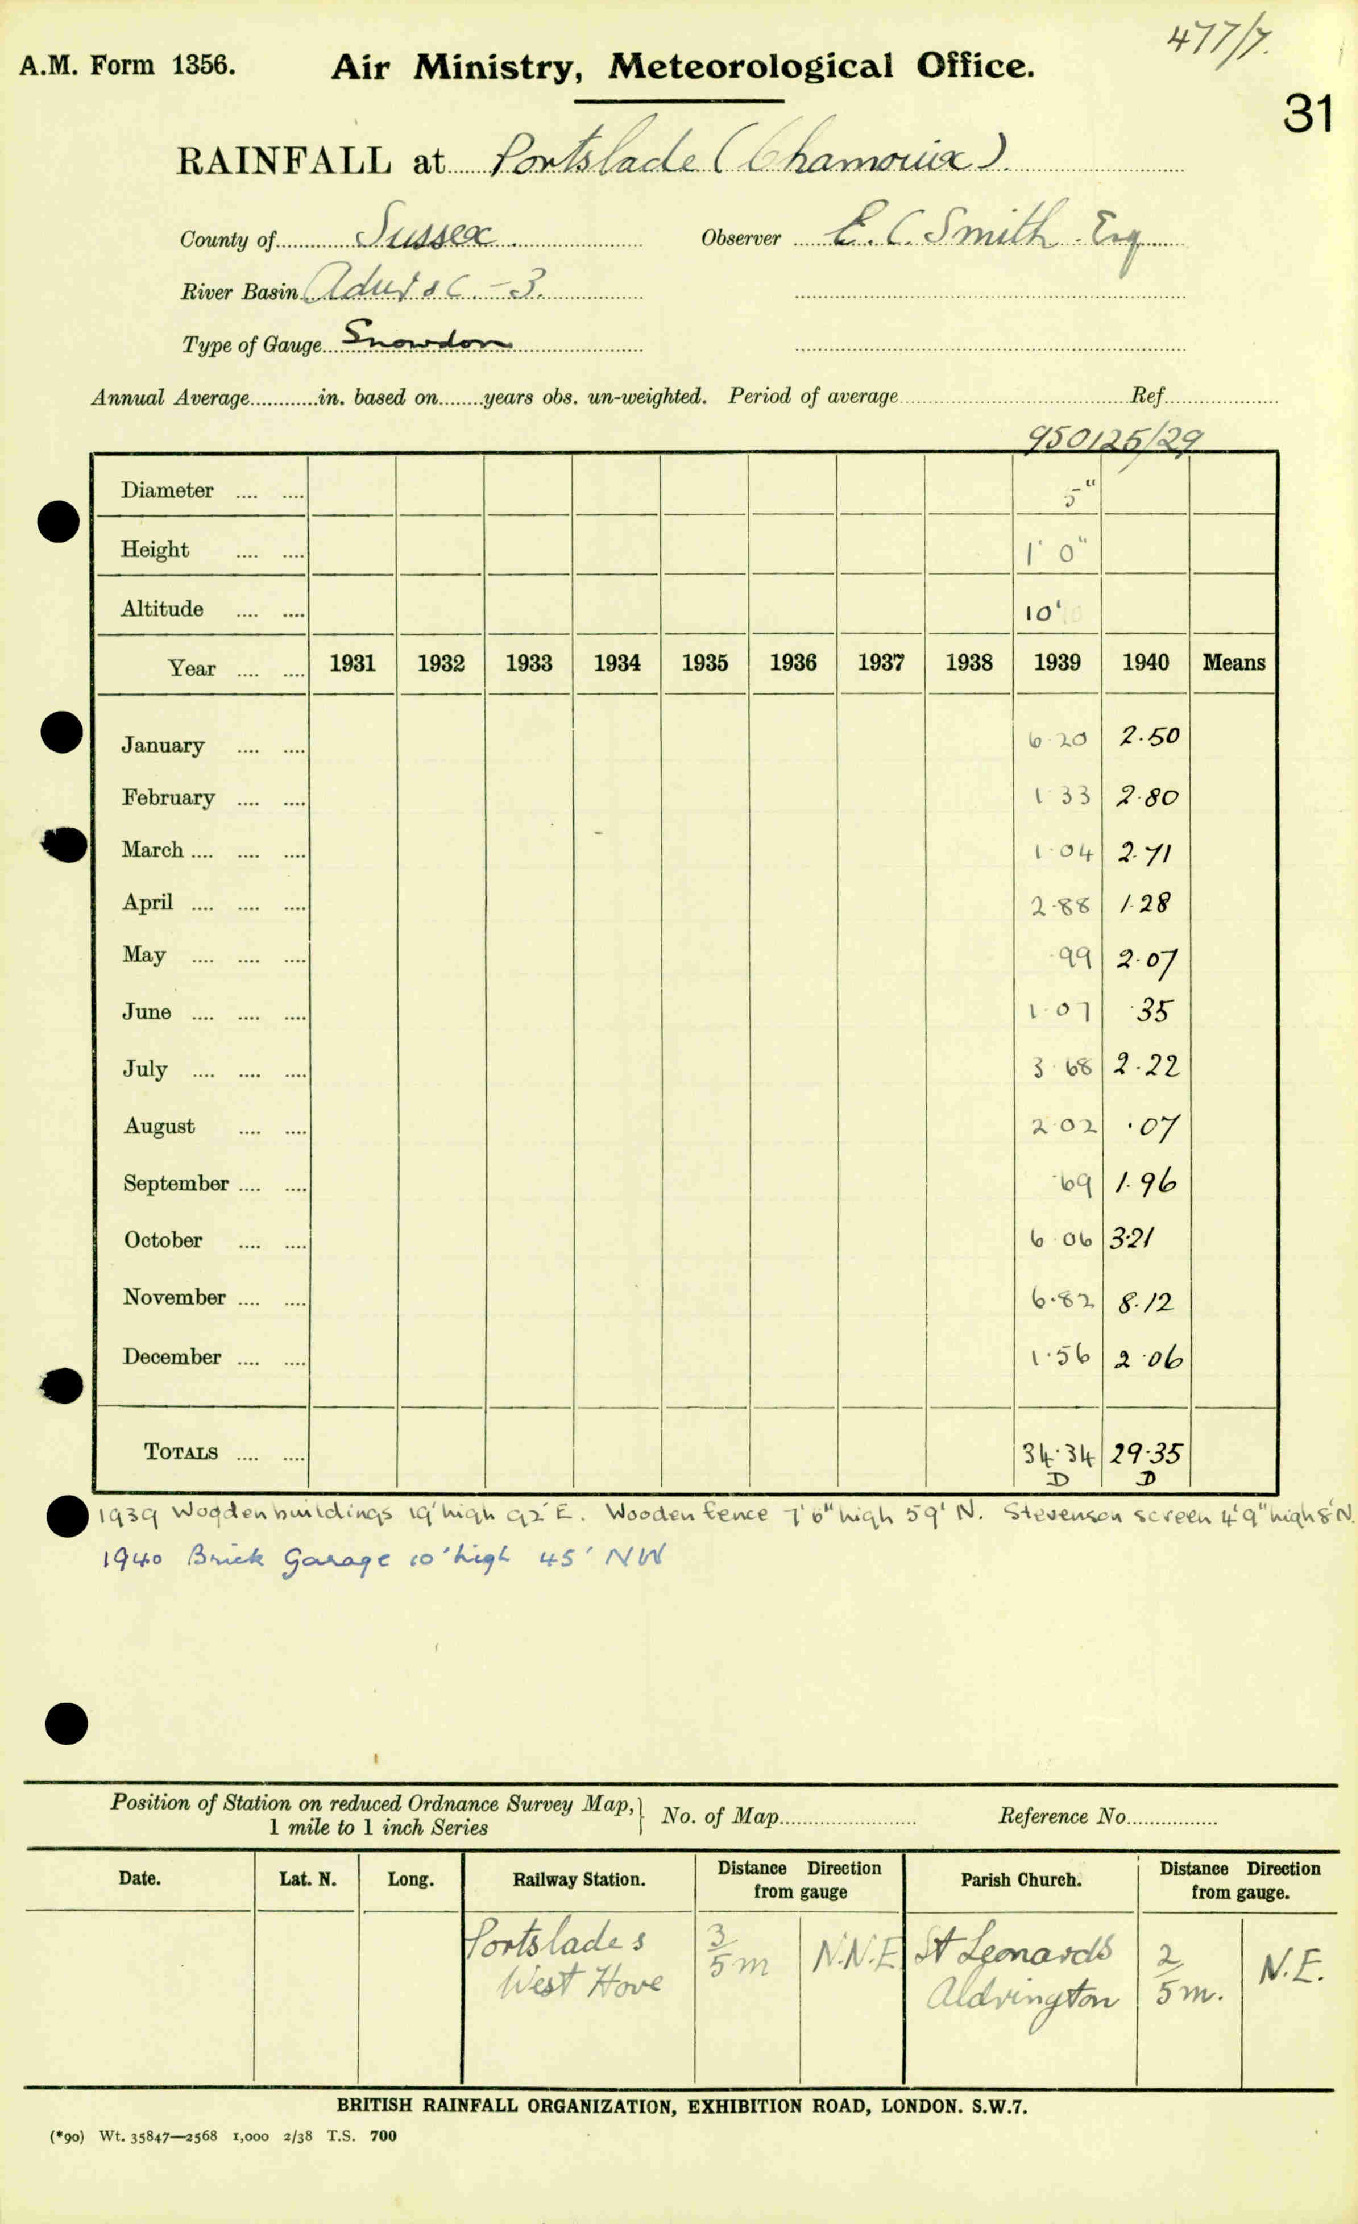 477/7.
A.M. Form 1356. Air Ministry, Meteorological Office.
31
RAINFALL at Portslade (Chamonix).
County of Sussex. Observer E. C. Smith. Esq
River Basin Adur &c. - 3.
Type of Gauge Snowdon
Annual Average in. based on years obs. un-weighted. Period of average Ref.
950125/29
Diameter 5"
Height 1' 0"
Altitude 10'
Year 1931 1932 1933 1934 1935 1936 1937 1938 1939 1940 Means
January 6.20 2.50
February 1.33 2.80
March 1.04 2.71
April 2.88 1.28
May .99 2.07
June 1.07 .35
July 3.68 2.22
August 2.02 .07
September .69 1.96
October 6.06 3.21
November 6.82 8.12
December 1.56 2.06
TOTALS 34.34 29.35
D D
1939 Wooden buildings 19' high 92' E. Wooden fence 7'6" high 59' N. Stevenson screen 4'9" high 8' N.
1940 Brick Garage 10' high 45' NW
Position of Station on reduced Ordnance Survey Map, 1 mile to 1 inch Series } No. of Map Reference No.
Date. Lat. N. Long. Railway Station. Distance Direction from gauge Parish Church. Distance Direction from gauge.
Portslade & West Hove 3/5 m N.N.E. St Leonards Aldrington 2/5 m. N.E.
BRITISH RAINFALL ORGANIZATION, EXHIBITION ROAD, LONDON. S.W.7.
(*90) Wt. 35847—2568 1,000 2/38 T.S. 700